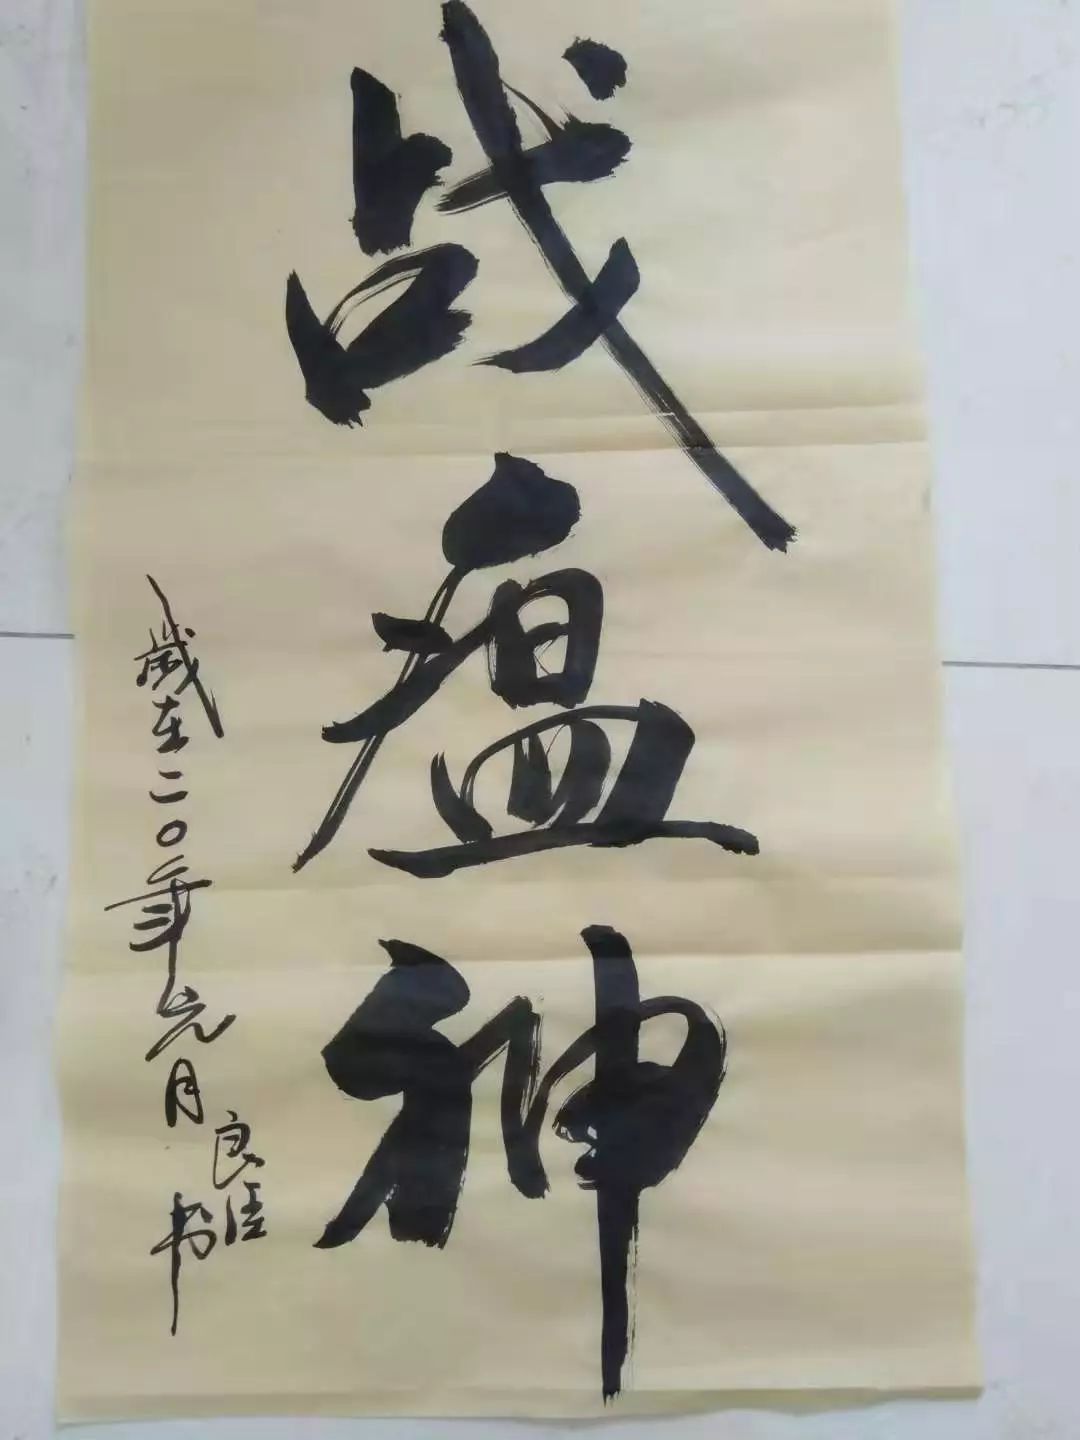 战瘟神
岁在二〇年元月
良臣
书